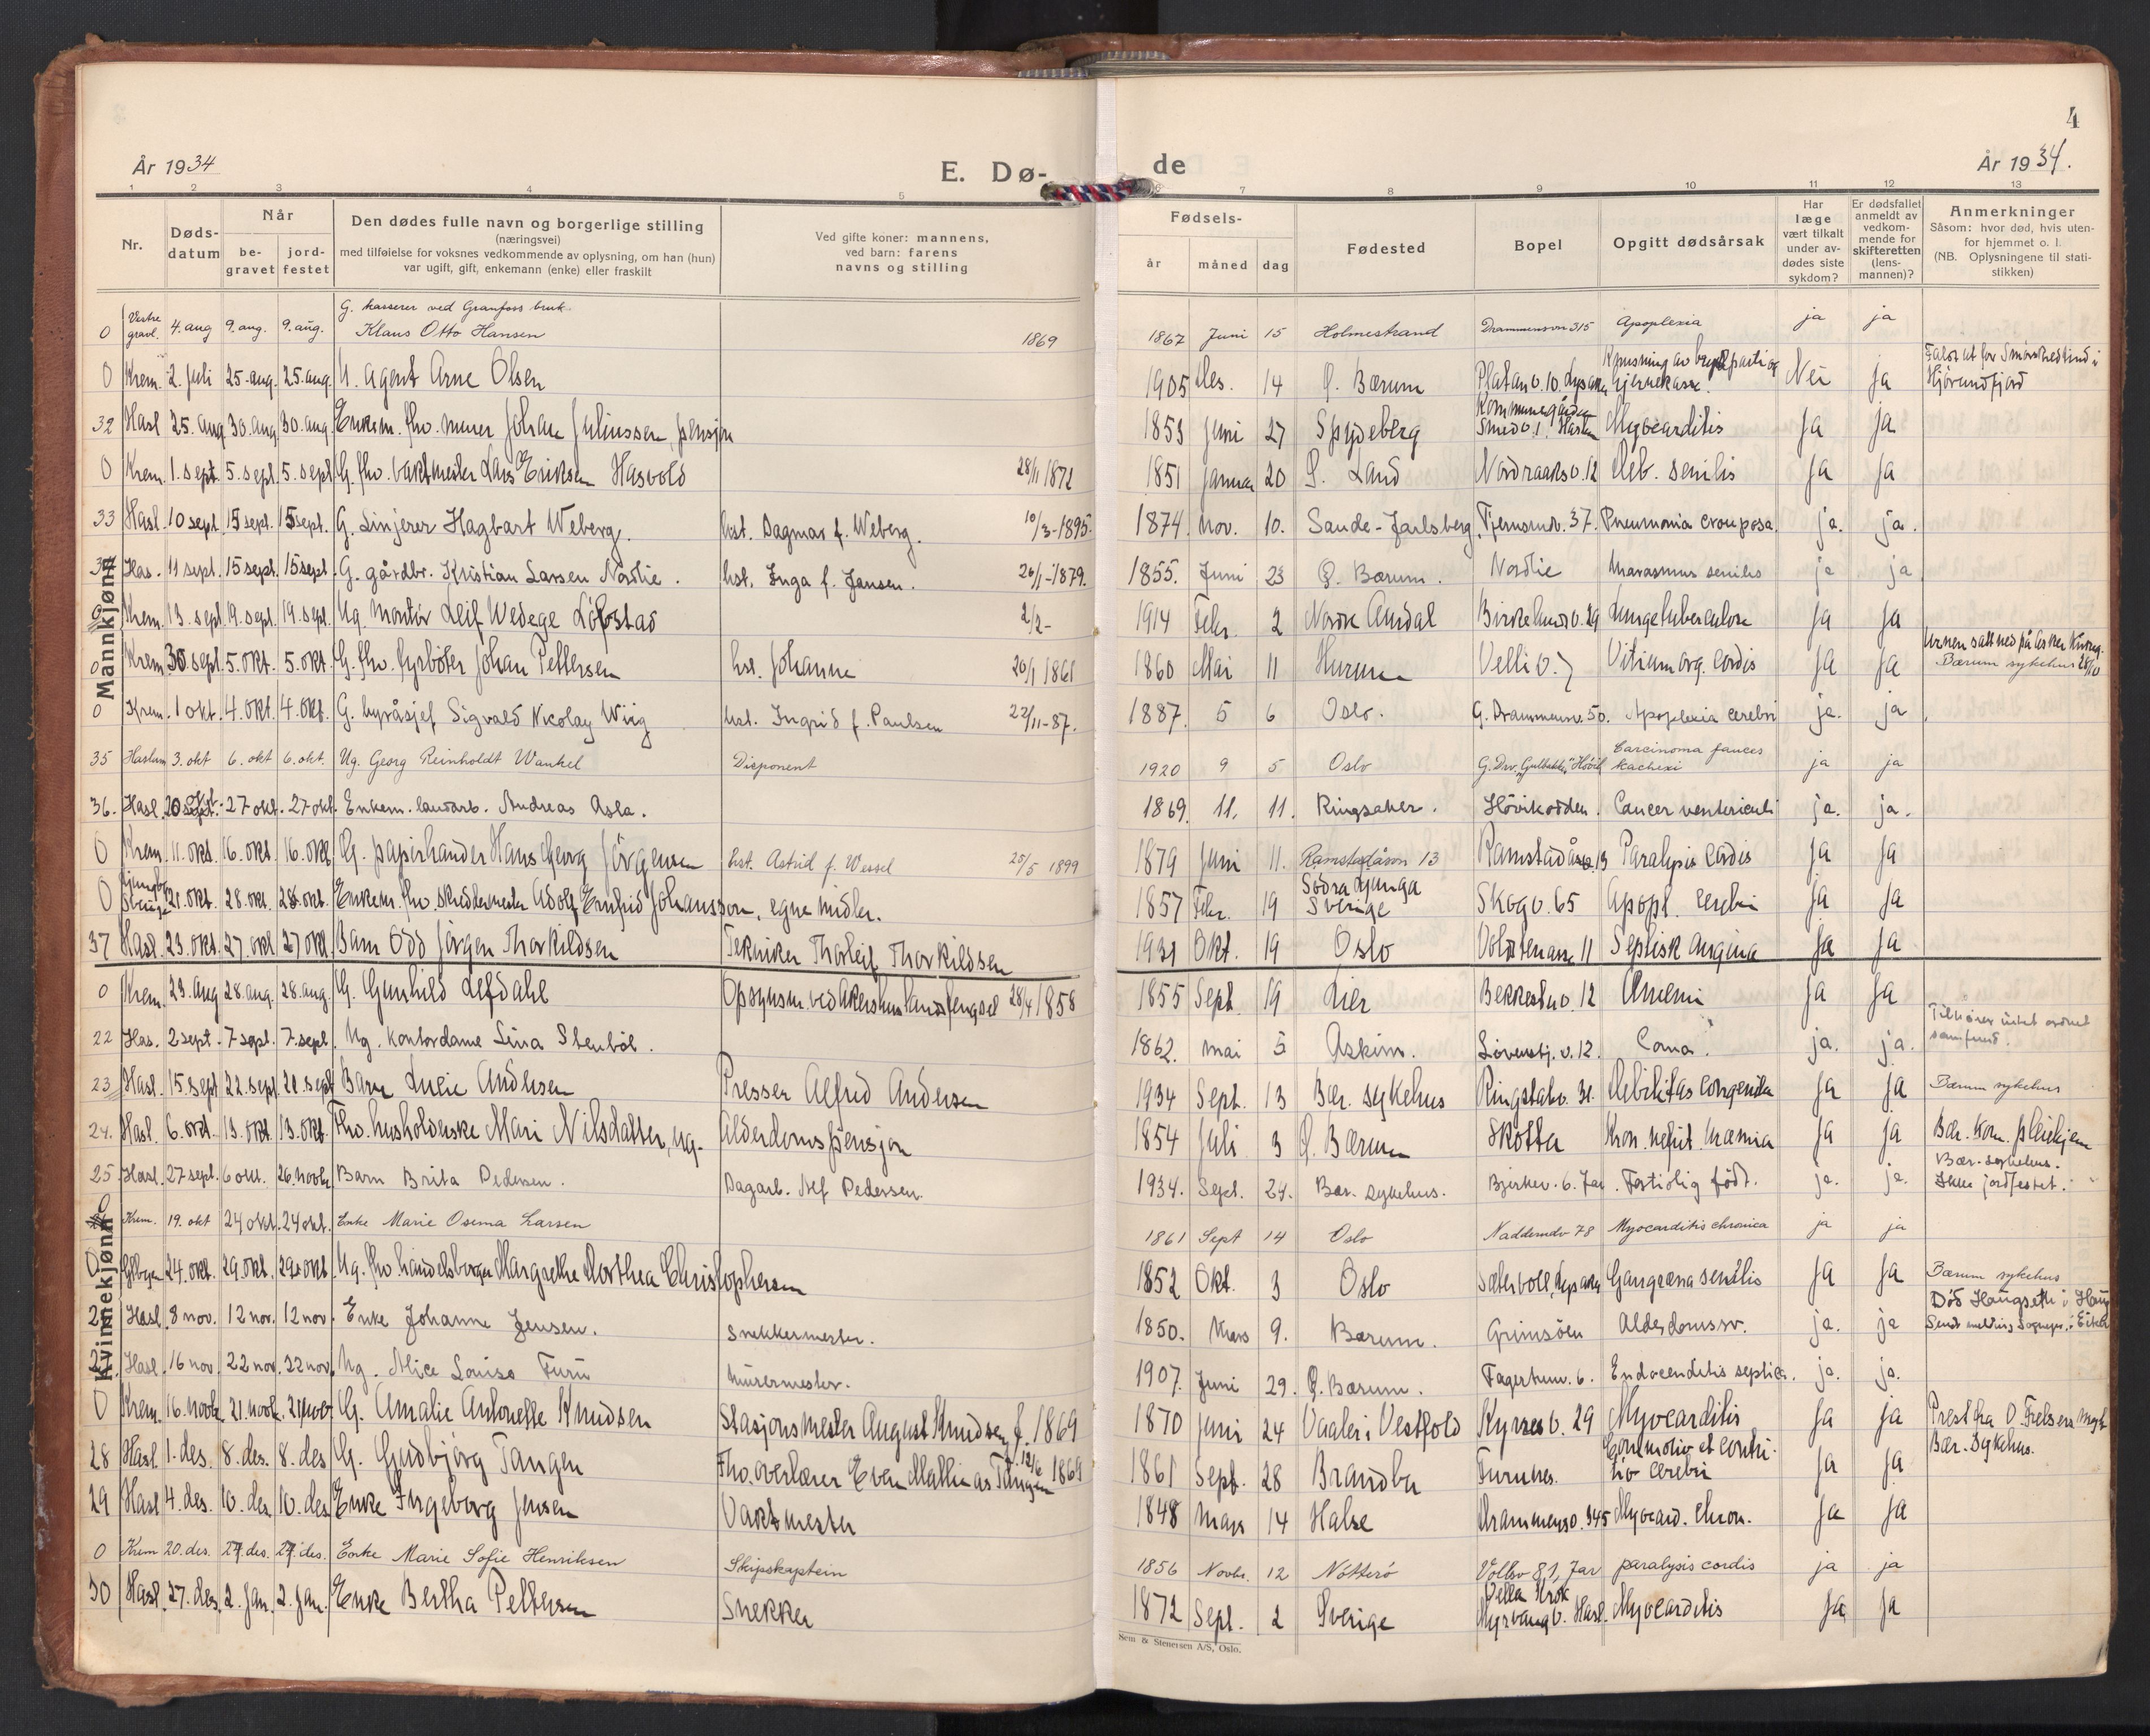 4
År 1934
E. Dø-
de
År 1934.
1 2 3 4 5 6 7 8 9 10 11 12 13
Nr.
Døds-
datum
Når
be-
gravet
jord-
festet
Den dødes fulle navn og borgerlige stilling
(næringsvei)
med tilføielse for voksnes vedkommende av oplysning, om han (hun)
var ugift, gift, enkemann (enke) eller fraskilt
Ved gifte koner: mannens,
ved barn: farens
navns og stilling
Fødsels-
år måned dag
Fødested
Bopel
Opgitt dødsårsak
Har
læge
vært tilkalt
under av-
dødes siste
sykdom?
Er dødsfallet
anmeldt av
vedkom-
mende for
skifteretten
(lens-
mannen)?
Anmerkninger
Såsom: hvor død, hvis uten-
for hjemmet o. l.
(NB. Oplysningene til stati-
stikken)
Mannkjønn
G. kasserer ved Granfoss bruk.
0 Vestre gravl. 4. aug 9. aug. 9. aug. Klaus Otto Hansen 1869 1867 Juni 15 Holmestrand Drammensvn 315 Apoplexia ja ja
0 Krem. 2. Juli 25. aug. 25. aug. U. agent Arne Olsen 1905 Des. 14 Ø. Bærum Platanv. 10. Lysaker Knusning av brystparti og hjernekasse. Nei Ja Falt ut for Smørskredtind i Hjørundfjord
32 Hasl 25. aug 30. aug. 30. aug. Enkem. fhv. murer Johan Juliussen, pensjon 1853 Juni 27 Spydeberg Kommunegården Smedv. 1. Haslum Myocarditis Ja Ja
0 Krem. 1. sept. 5. sept. 5. sept. G. fhv. vaktmester Lars Eriksen Hasvold 28/11 1872 1851 Januar 20 S. Land Nordraaksv. 12 Deb. senilis Ja Ja
33 Hasl. 10 sept. 15 sept. 15 sept. G. Linjerer Hagbart Weberg. hst. Dagmar f. Weberg. 10/3-1895. 1874. Nov. 10. Sande-Jarlsberg. Tjernsrudv. 37. Pneumonia crouposa. ja. ja.
Has. 11 sept. 15 sept. 15 sept. G. gårdbr. Kristian Larsen Nordlie. hst. Inga f. Jansen. 26/1-1879. 1855. Juni 23 Ø. Bærum. Nordlie Marasmus senilis ja ja
0 Krem. 13. sept. 19. sept. 19. sept. Ug. Montør Leif Wedege Løvstad 2/2- 1914 Febr. 2 Nordre Aurdal Birkelundv. 29 Lungetuberculose Ja Ja
0 Krem. 30. sept. 5. okt. 5. okt. G. fhv. fyrbøter Johan Pettersen hst. Johanne 20/1 1861 1860 Mai 11 Hurum Velliv. 7 Vitium org. cordis Ja Ja Urnen satt ned på Asker Kirkeg. Bærum sykehus
0 Krem. 1 okt. 4. okt. 4. okt. G. byråsjef Sigvald Nicolay Wiig hst. Ingrid f. Paulsen 22/11-87. 1887. 5 6 Oslo. G. Drammensv. 50. Apoplexia cerebri ja. ja
35 Haslum 3. okt 6. okt 6. okt. Ug. Georg Reinholdt Wankel Disponent 1920 9 5 Oslo G. Drv. "Gulbakke" Høvik Carcinoma fauces kachexi ja ja
36. Hasl. 20 okt. 27 okt. 27 okt. Enkem. landarb. Andreas Asla. 1869. 11. 11. Ringsaker. Høvikodden. Cancer ventericuli ja. ja.
0 Krem. 11. okt. 16. okt. 16. okt. G. papirhandler Hans Georg Jørgensen hst. Astrid f. Wessel 25/5 1899 1879 Juni 11. Ramstadåsen 13 Ramstadåsen 13 Paralysis cordis Ja Ja
0 Ljungby Sverige 21. okt. 28. okt. 28. okt. Enkem. fhv. skreddermester Adolf Ernfrid Johansson, egne midler. 1857 Febr. 19 Södra Ljunga Sverige Skogv. 65 Apopl. cerebri Ja Ja
37 Hasl. 23. okt. 27. okt 27 okt Barn Odd Jørgen Thorkildsen Tekniker Thorleif Thorkildsen 1931 Okt. 19 Oslo 11 Septisk angina Ja Ja
Kvinnekjønn
0 Krem. 23. aug 28. aug. 28. aug. G. Gunhild Lefdahl Opsynsm. ved Akershus landsfengsel 28/4 1858 1855 Sept. 19 Lier Bekkestuv. 12 Anemi Ja Ja
22 Has. 2 sept. 7 sept. 7. sept. Ug. Kontordame Lina Stenbøl. 1862. Mai 5 Askim. Løvenskj. v. 12. Coma. ja. ja. Tilhører intet ordnet samfund.
23 Hasl. 15. sept 22. sept 22. sept Barn Lucie Andersen Presser Alfred Andersen 1934 Sept. 13 Bær. sykehus Ringstabv. 31. Debilitas congenita Ja Ja Bærum sykehus
24. Hasl. 6. okt. 13. okt. 13. okt. Fhv. husholderske Mari Nilsdatter, ug. Alderdomspensjon 1854 Juli 3 Ø. Bærum Skotta Kron. nefrit. Uræmia Ja Ja Bær. kom. pleiehjem
25 Hasl. 27 sept. 6 okt. 26. novbr. Barn Brita Pedersen. Dagarb. Alf Pedersen. 1934. Sept. 24. Bær. sykehus. Bjerkev. 6. Jar. Fortidlig født. ja. ja. Bær. sykehus. Ikke jordfestet.
0 Krem. 19. okt 24 okt. 24 okt. Enke Marie Osema Larsen 1861 Sept 14 Oslo Nadderudv 78 Myocarditis chronica ja ja
0 24. okt. 29. okt. 29. okt. Ug. fhv. handelsborger Margrethe Dorthea Christophersen 1852 Okt. 3 Oslo Lysaker Gangræna senilis Ja Ja Bærum sykehus
Hasl. 8 nov. 12 nov. 12 nov. Enke Johanne Jensen. snekkermester. 1850. Mars 9. Bærum. Grinisøen Alderdomssv. ja. ja Død Haugseth i Send melding Sogneprs. i
Hasl. 16 nov. 22 nov. 22 nov. Ug. Alice Louise Furu Murermester. 1907. Juni 29. Ø. Bærum. Fagertunv. 6. Endocarditis septica. ja. ja.
0 Krem. 16. novbr. 21. novbr. 21. nov. G. Amalie Antonette Knudsen Stasjonsmester August Knudsen f. 1869 1870 Juni 24 Vaale i Vestfold 29 Myocarditis Ja Ja Prest fra V. Frelsers
28 Hasl. 1. des. 8. des. 8. des G. Gudbjørg Tangen Fhv. overlærer Even Mathias Tangen 12/6 1869 1861 Sept. 28 Brandbu Furunes. Commotio et contusio cerebri Ja Ja Bær. sykehus.
29 Hasl 4. des. 10. des 10. des Enke Ingeborg Jensen Vaktmester 1848 Mars 14 Halse Drammensv. 345 Myocard. chron. Ja Ja
0 Krem 20. des. 27. des. 27. des. Enke Marie Sofie Henriksen Skipskaptein 1856 Novbr. 12 Nøtterø Vollsv 81, Jar paralysis cordis ja ja
30 Hasl. 27. des. 2. jan. 2. jan. Enke Bertha Pettersen Snekker 1872 Sept. 2 Sverige Villa Krok Myrvangv. Hasl. Myocarditis Ja Ja
Sem & Stenersen A/S, Oslo.